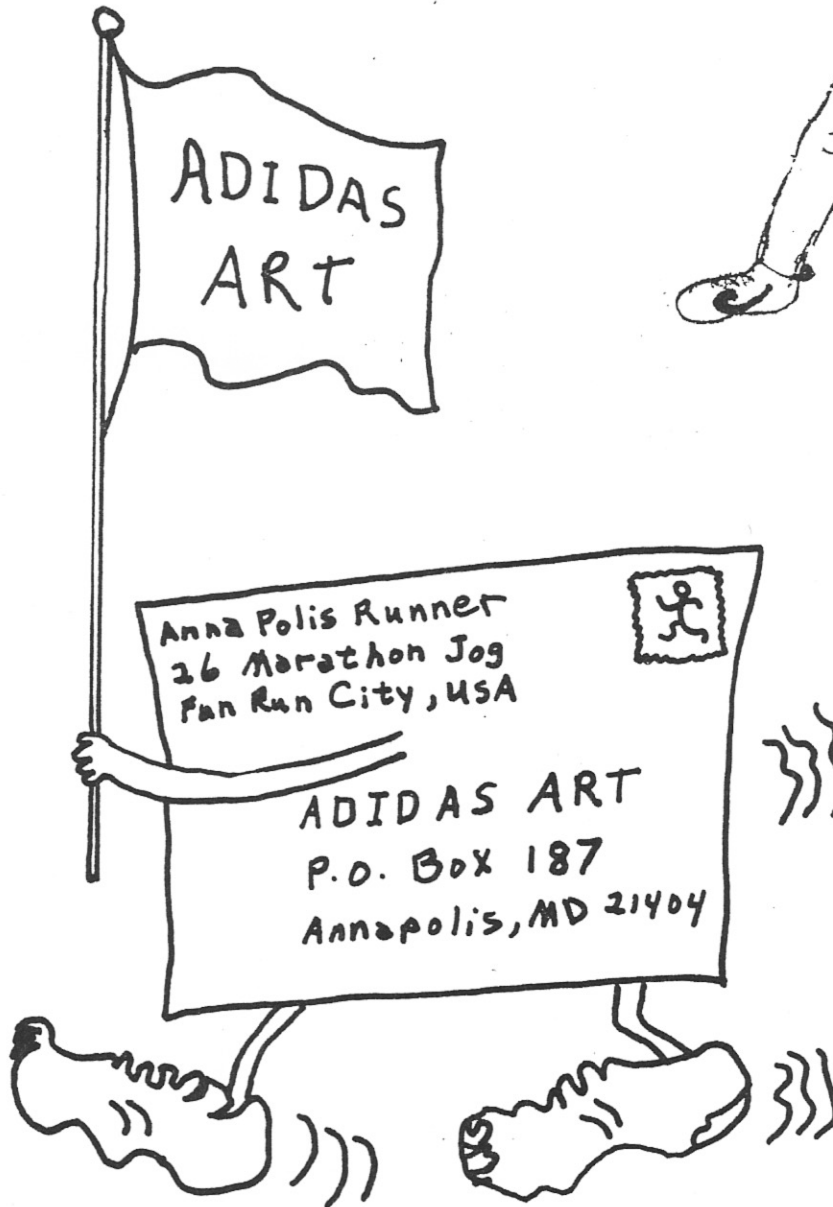 ADIDAS
ART
Anna Polis Runner
26 Marathon Jog
Fun Run City, USA
ADIDAS ART
P.O. Box 187
Annapolis, MD 21404